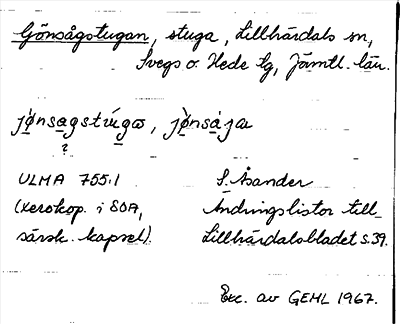 Gönsågstugan, stuga, Lillhärdals sn,
Svegs o. Hede tg, Jämtl. län.
jø̀nsagstúga, jø̀nsája
?
ULMA 755:1 S. Åsander
(Xerokop. i SOA, Ändringslistor till
särsk. kapsel). Lillhärdalsbladet s.39.
Exc. av GEHL 1967.